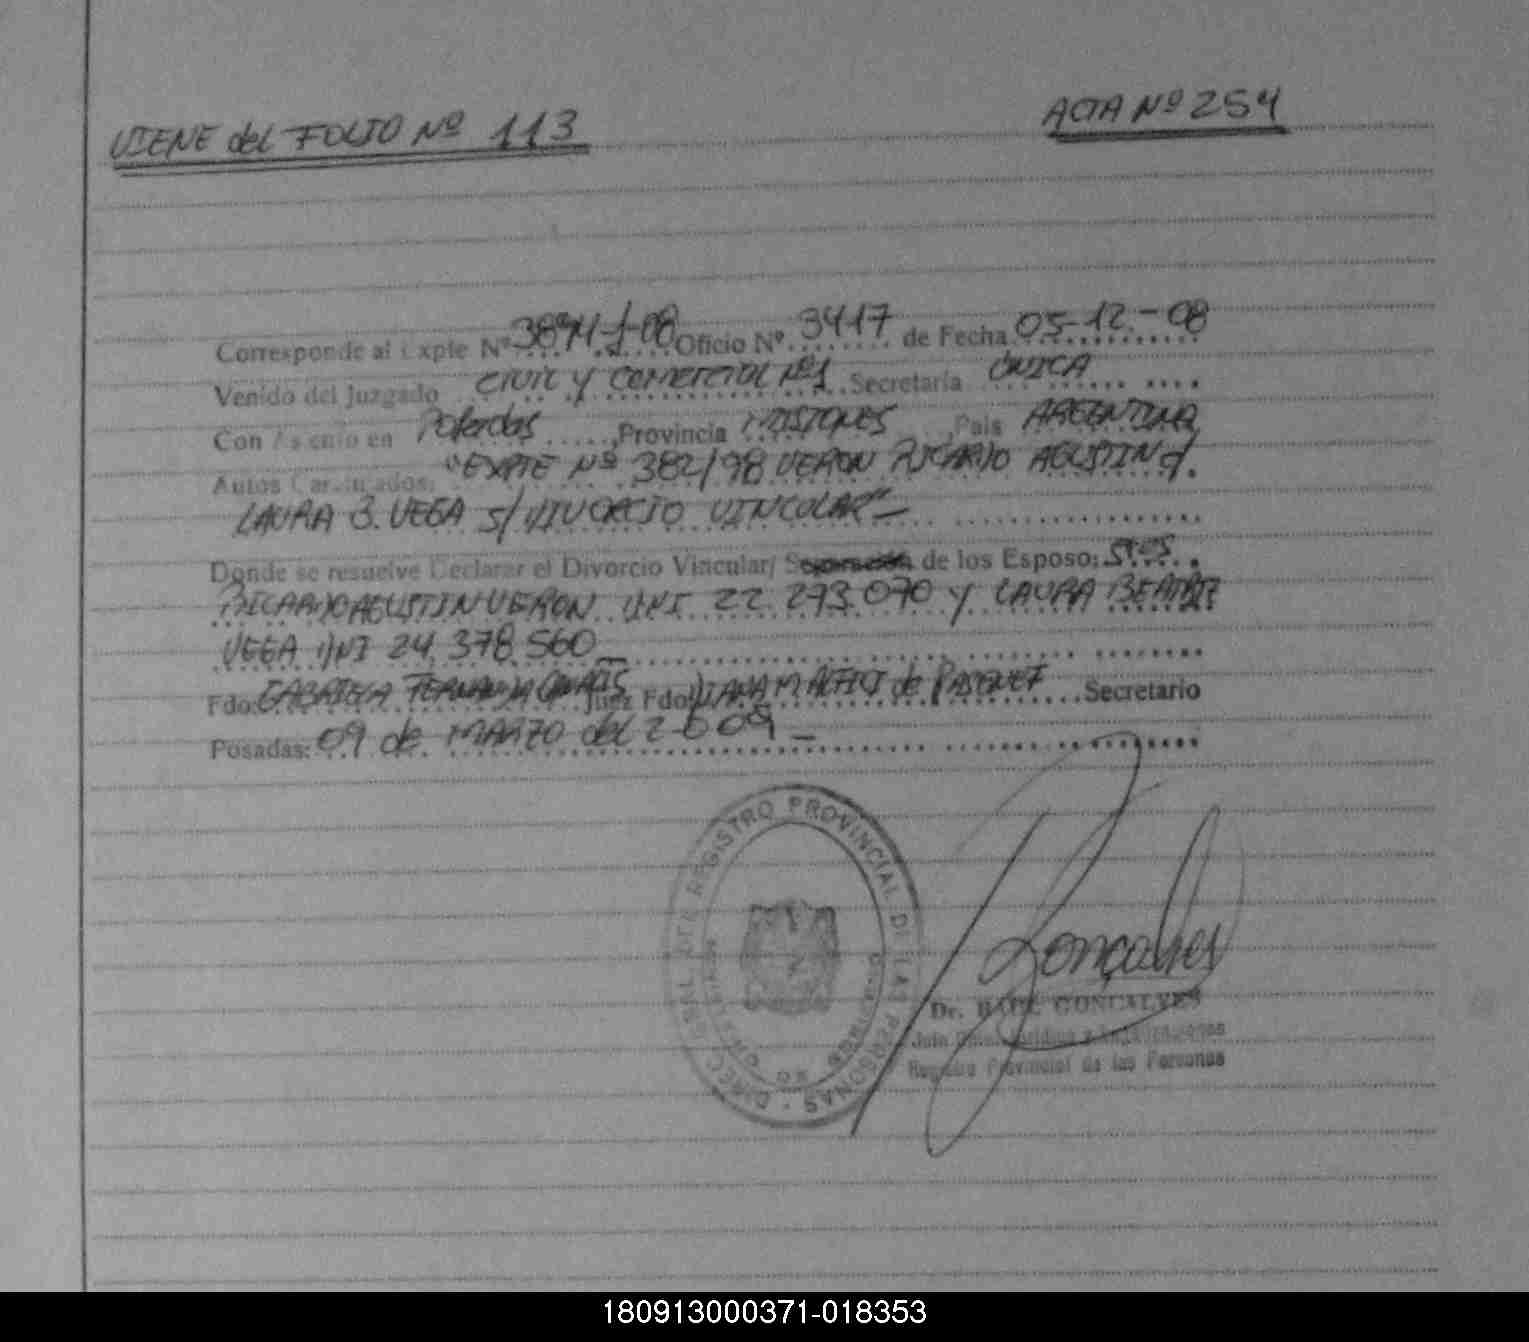 VIENE del FOLIO Nº 113
ACTA Nº 254
Corresponde al Expte Nº 3894-J-08 Oficio Nº 3417 de Fecha 05-12-08
Venido del Juzgado CIVIL Y COMERCIAL Nº1 Secretaría ÚNICA
Con Asiento en Posadas, Provincia MISIONES País ARGENTINA
Autos Caratulados: "EXPTE Nº 382/98 VERON RICARDO AGUSTIN c/.
LAURA B. VEGA s/ DIVORCIO VINCULAR"-
Donde se resuelve Declarar el Divorcio Vincular/ Separación de los Esposo: SRES
RICARDO AGUSTIN VERON DNI 22.293.070 y LAURA BEATRIZ
VEGA DNI 24.378.560
Fdo: GABRIELA FERNANDA Juez Fdo: DIANA M. de Secretario
Posadas: 09 de MARZO del 2009
DIREC. GRAL. DEL REGISTRO PROVINCIAL DE LAS PERSONAS
Gonçalves
Dr. RAUL GONCALVES
Registro Provincial de las Personas
180913000371-018353